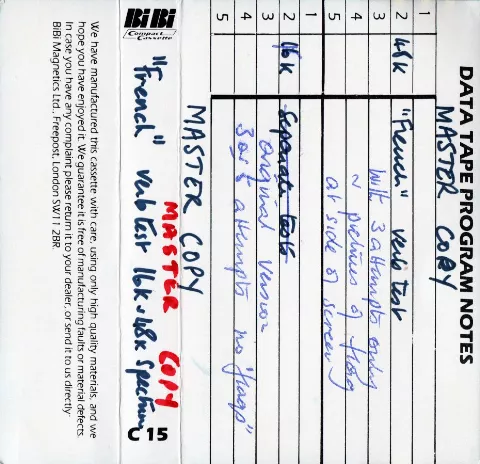 DATA TAPE PROGRAM NOTES
MASTER COPY
1
2 48K "French" verb test
3 With 3 attempts only
4 ~ pictures of flag
5 at side of screen
1
2 16K Separate tests
3 original version
4 3 or 4 attempts no "flags"
5
MASTER COPY
BiBi
Compact Cassette
MASTER COPY
"French" verb test 16K & 48K Spectrum
C 15
We have manufactured this cassette with care, using only high quality materials, and we
hope you have enjoyed it. We guarantee it is free of manufacturing faults or material defects.
In case you have any complaint please return it to your dealer, or send it to us directly:
BiBi Magnetics Ltd., Freepost, London SW11 2BR